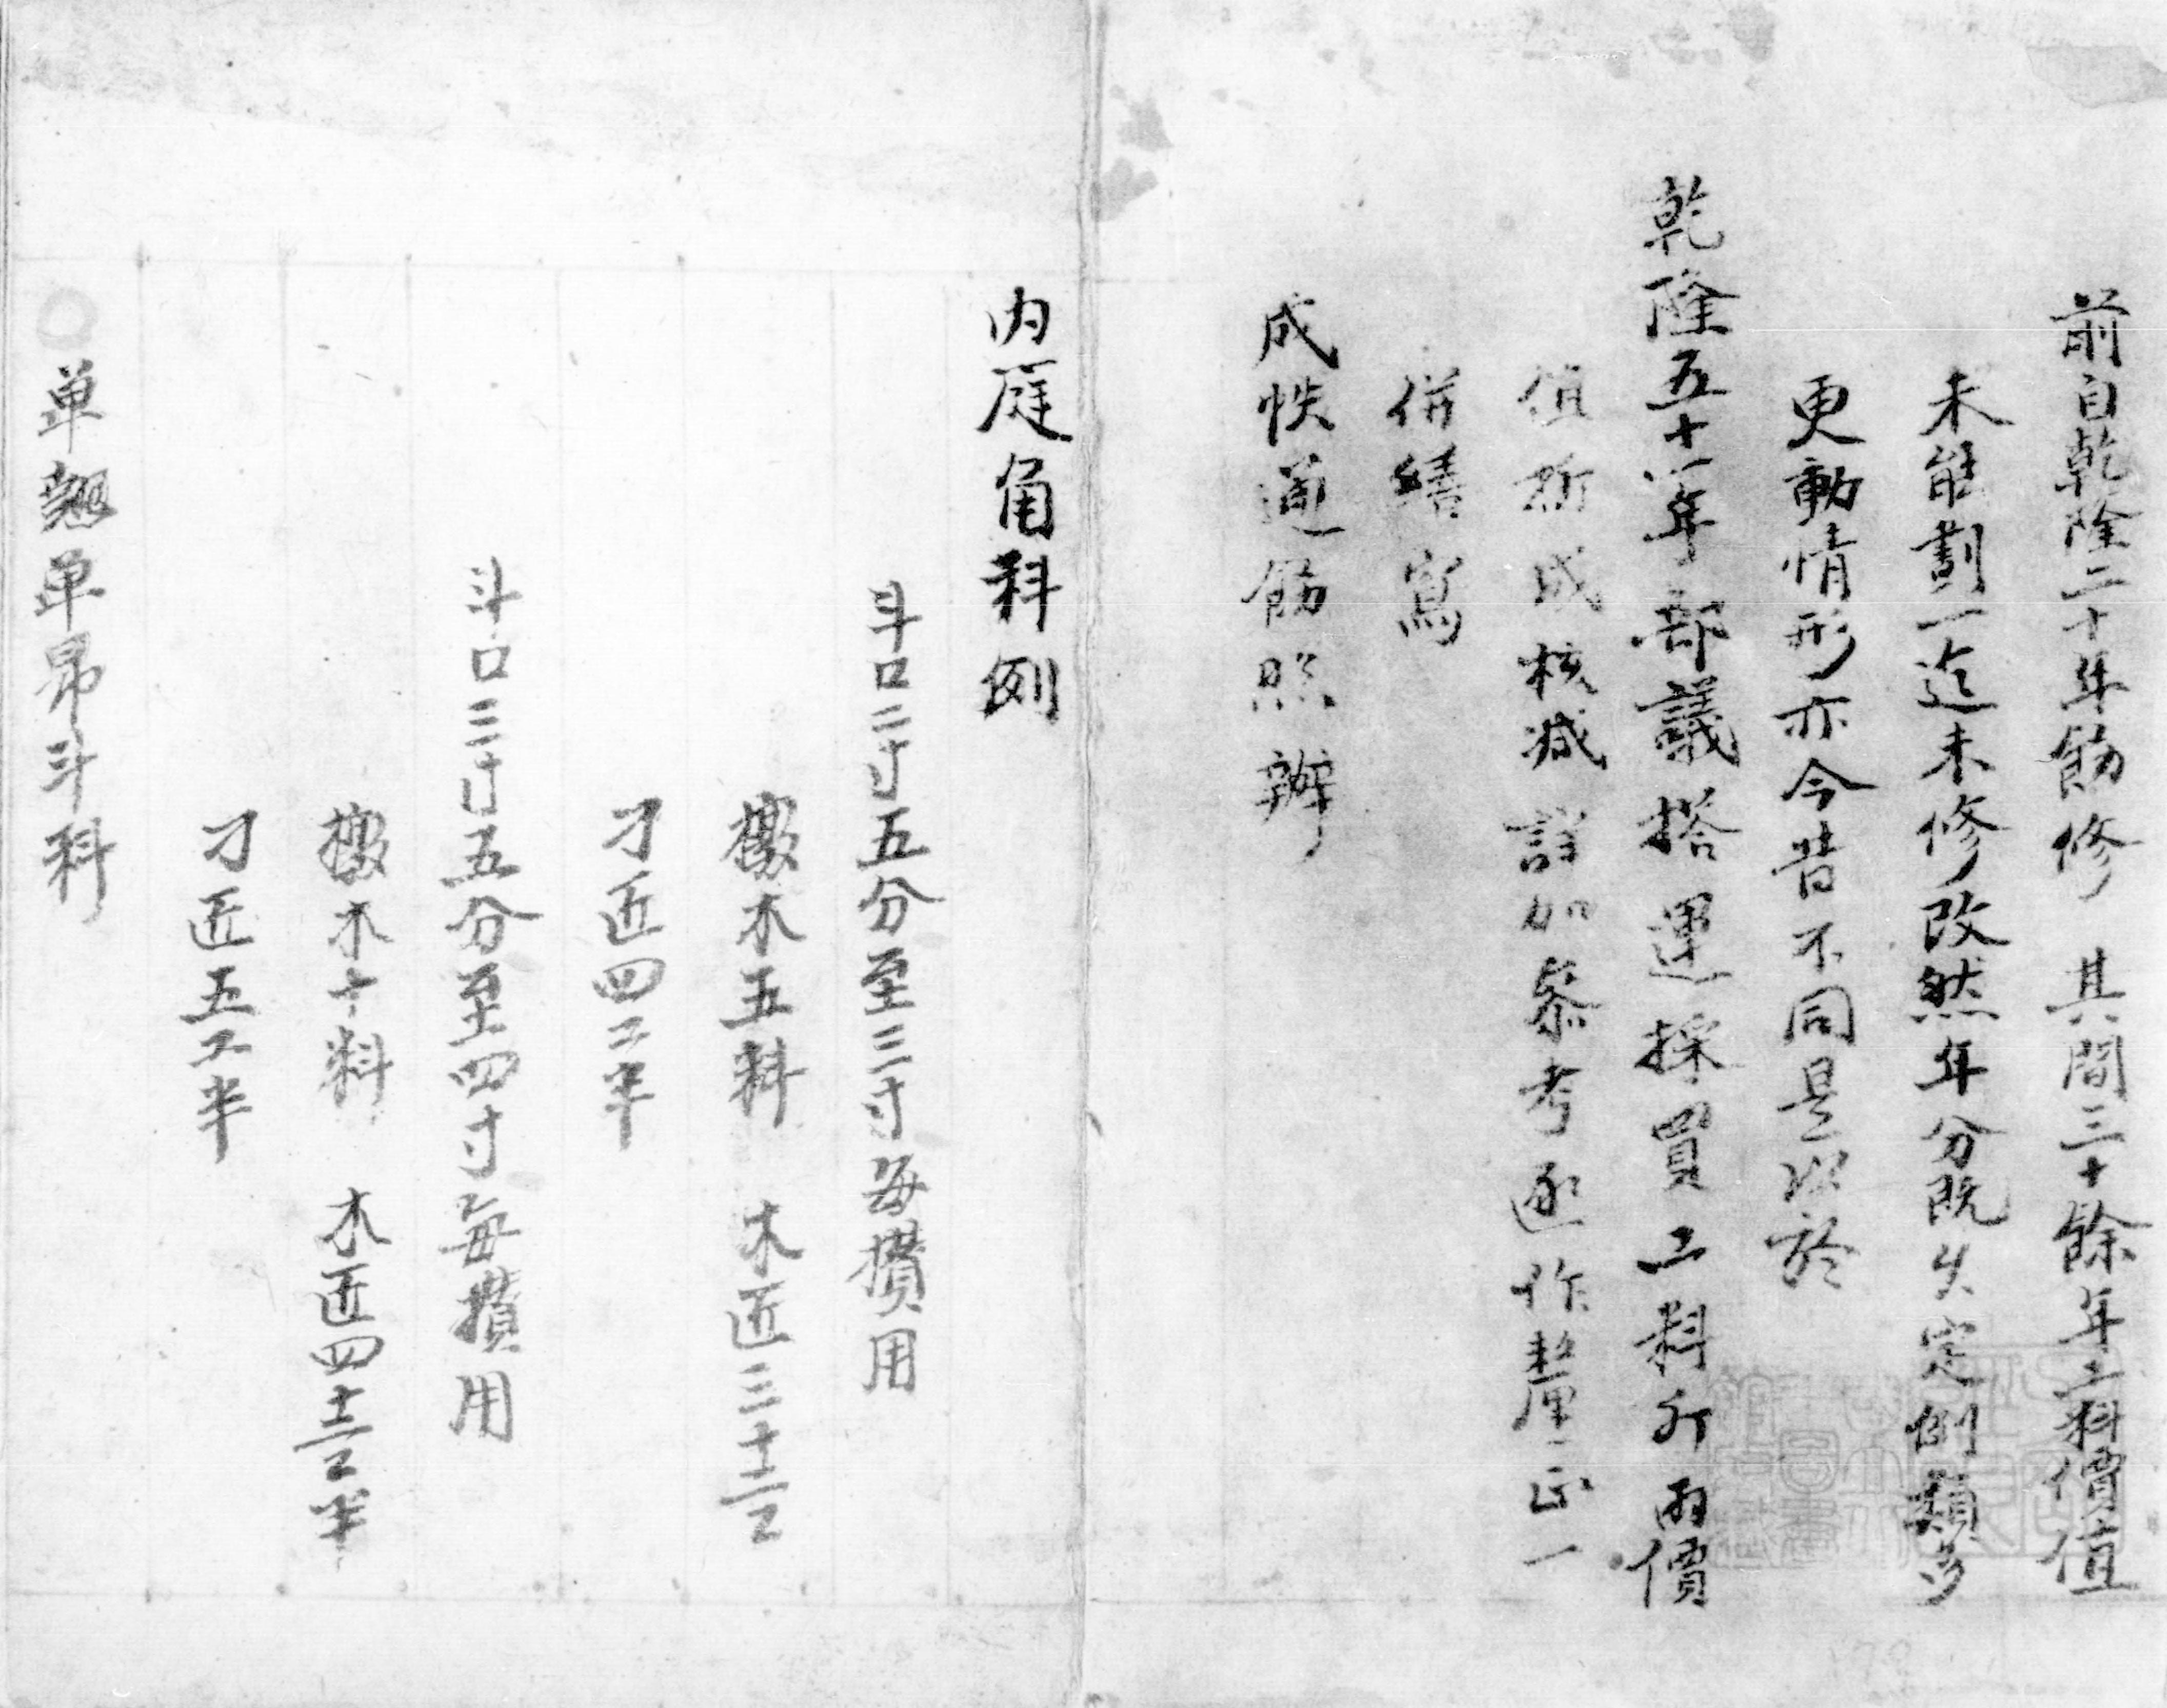 前自乾隆二十年飭修 其間三十餘年工料價值
未能劃一迄未修改然年分既久定例類多
更動情形亦今昔不同是以於
乾隆五十 年部議搭運採買工料斤両價
值折成核减 詳加叅考逐作釐正一
併繕寫
成帙通飭照辦
内庭角科例
斗口二寸五分至三寸每攢用
木五料 木匠三十二工
刁匠四工半
斗口三寸五分至四寸每攢用
木十料 木匠四十二工半
刁匠五工半
单翹单昂斗科